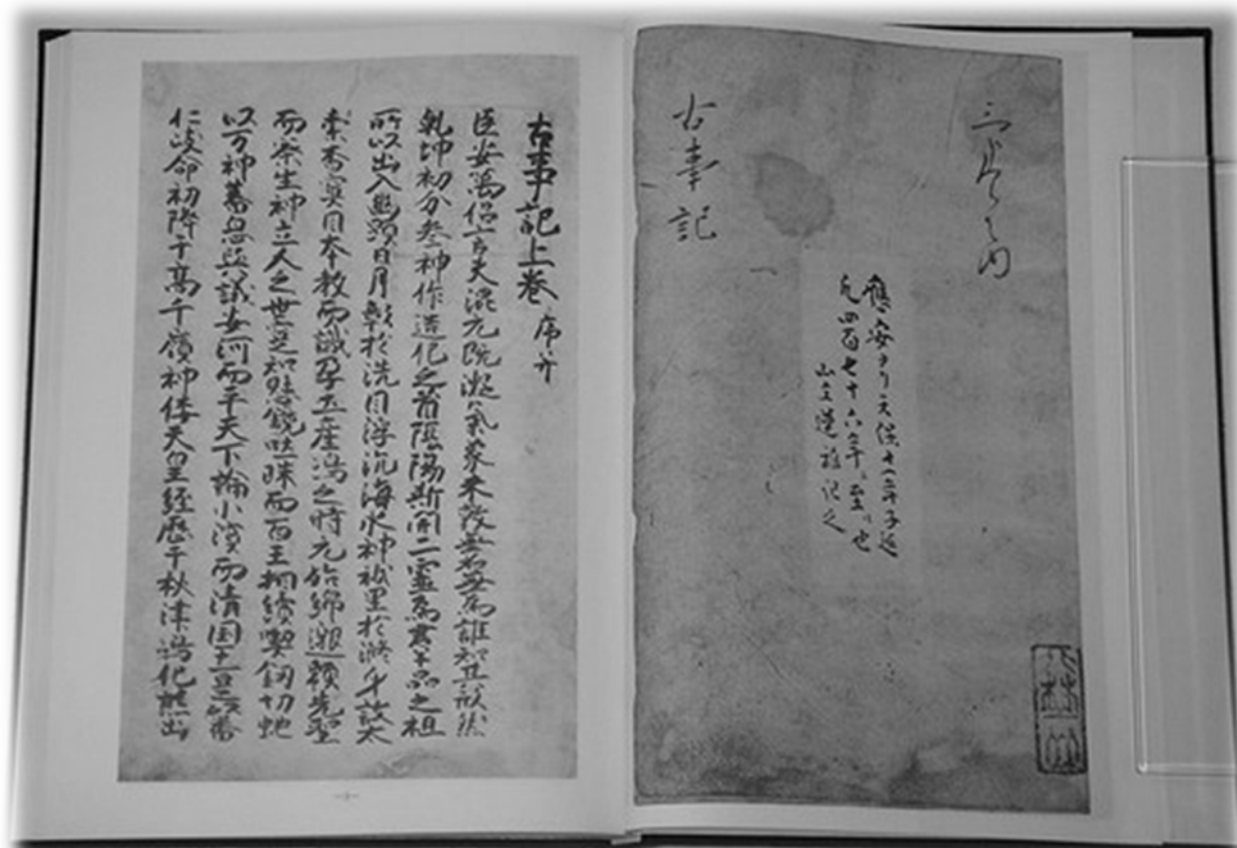 三帖之内
應安ヨリ天保十一年子迄
凡四百七十六年ニ至ル也
記之
古事記
古事記上卷 序并
臣安萬侶言夫混元既凝氣象未效無名無為誰知其形然
乾坤初分叅神作造化之首陰陽斯開二靈為群品之祖
所以出入幽顯日月彰於洗目浮沉海水神祇呈於滌身故太
素杳冥因本教而識孕土產嶋之時元始綿邈頼先聖
而察生神立人之世寔知懸鏡吐珠而百王相續喫釼切蛇
以万神蕃息與議安河而平天下論小濱而清国土是以番
仁岐命初降于高千嶺神倭天皇經歷于秋津嶋化熊出